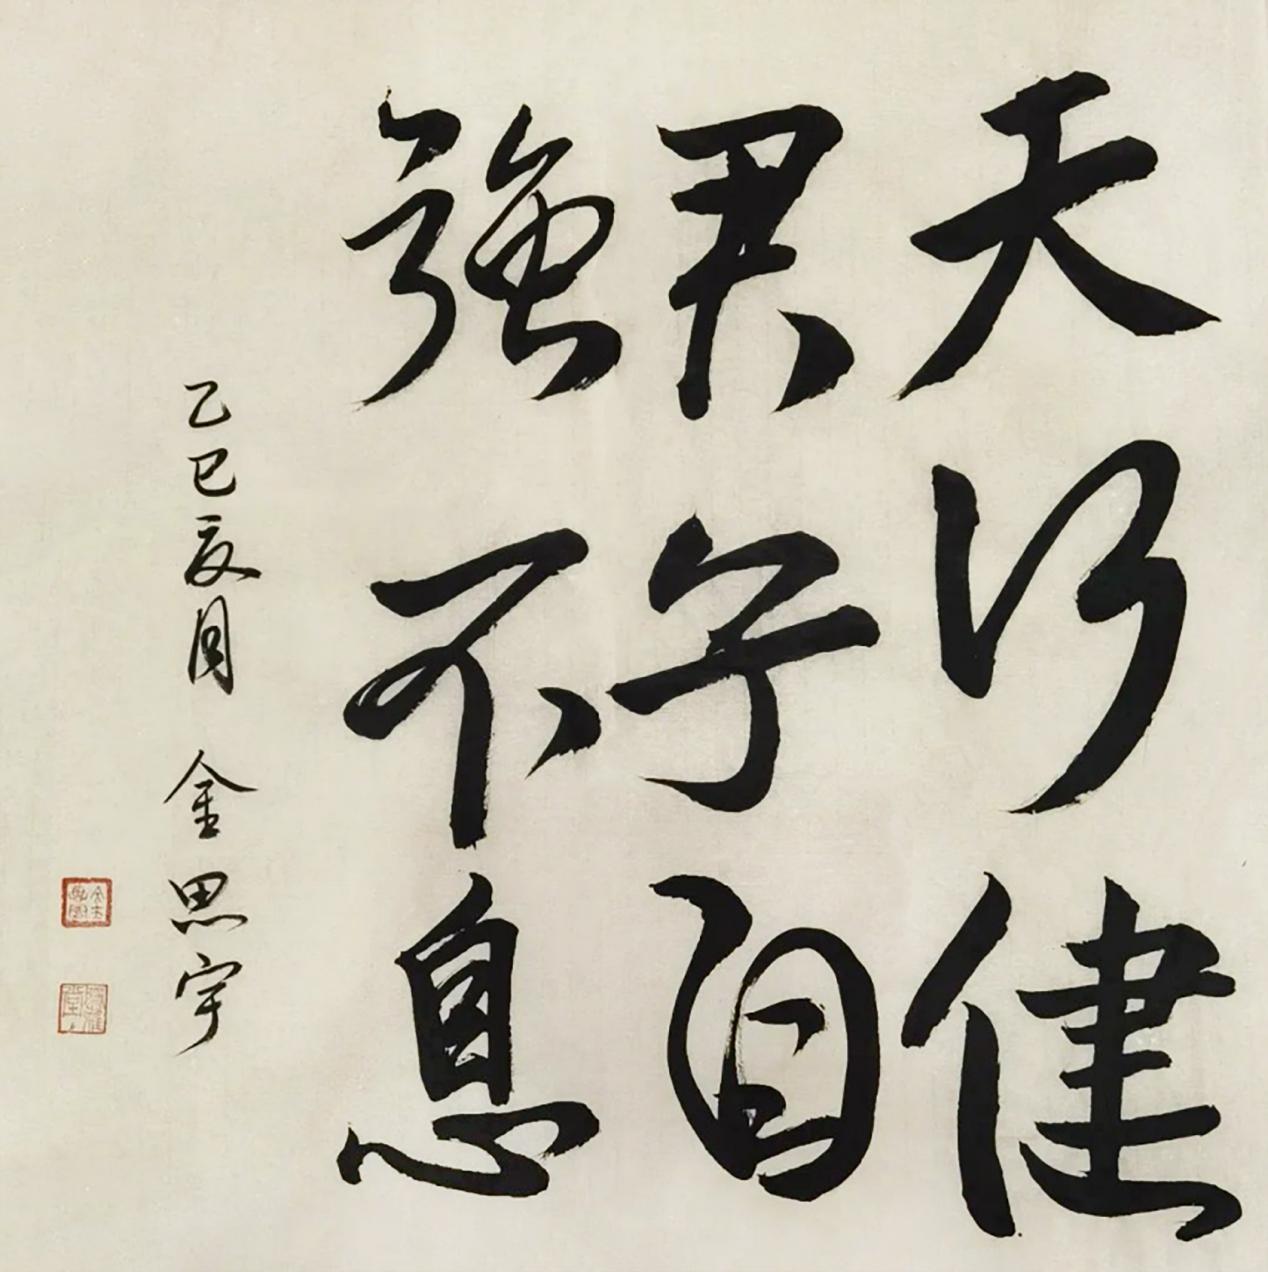 天行健
君子自
強不息
乙巳夏月 金思宇